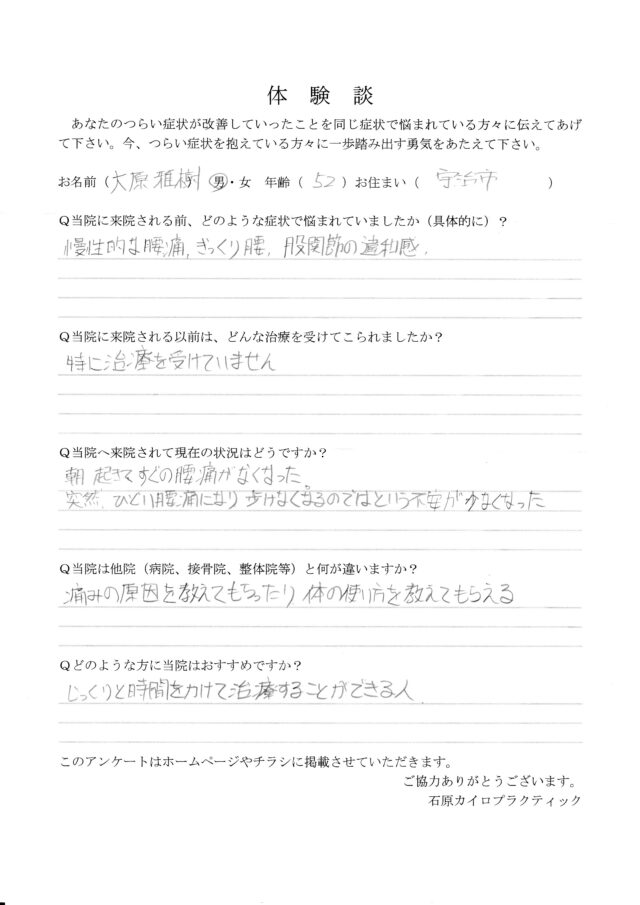 体験談
あなたのつらい症状が改善していったことを同じ症状で悩まれている方々に伝えてあげ
て下さい。今、つらい症状を抱えている方々に一歩踏み出す勇気をあたえて下さい。
お名前（大原雅樹）男・女 年齢（52）お住まい（宇治市）
Ｑ当院に来院される前、どのような症状で悩まれていましたか（具体的に）？
慢性的な腰痛,ぎっくり腰,股関節の違和感.
Ｑ当院に来院される以前は、どんな治療を受けてこられましたか？
特に治療を受けていません
Ｑ当院へ来院されて現在の状況はどうですか？
朝 起きてすぐの腰痛がなくなった。
突然,ひどい腰痛になり歩けなくなるのではという不安が少なくなった
Ｑ当院は他院（病院、接骨院、整体院等）と何が違いますか？
痛みの原因を教えてもらったり体の使い方を教えてもらえる
Ｑどのような方に当院はおすすめですか？
じっくりと時間をかけて治療することができる人.
このアンケートはホームページやチラシに掲載させていただきます。
ご協力ありがとうございます。
石原カイロプラクティック